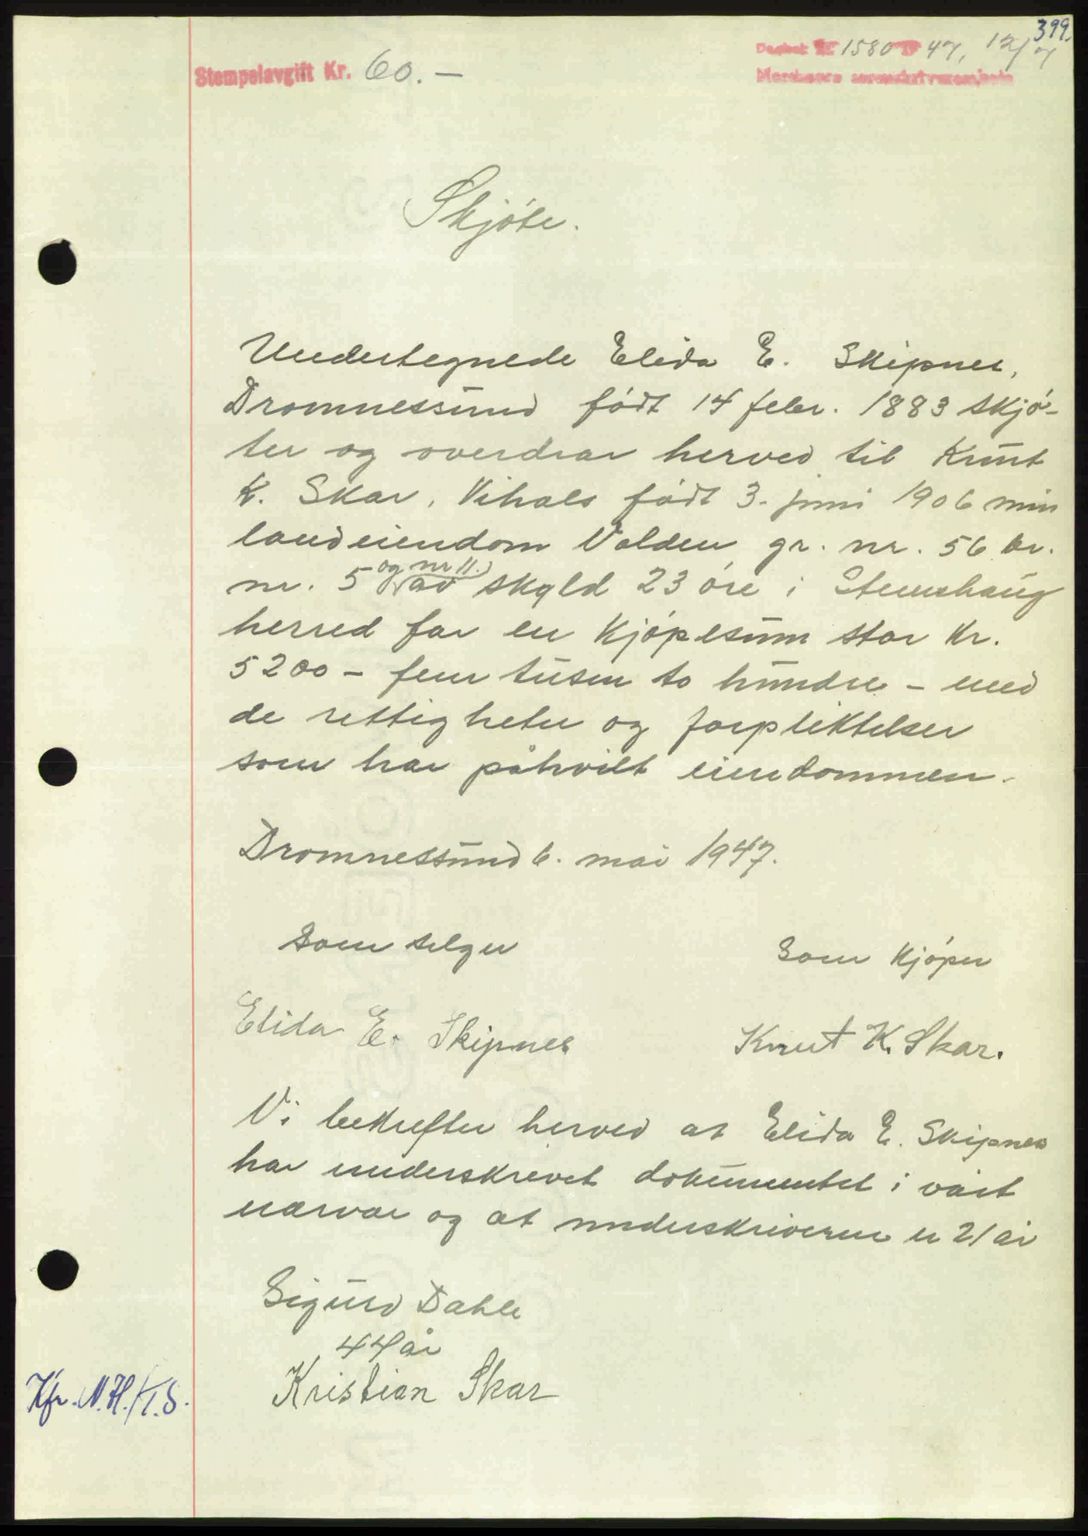 399.
Stempelavgift Kr. 60.-
Dagbok nr. 1580 19 47, 12/7
Nordmøre sorenskriverembete
Skjøte.
Undertegnede Elida E. Skipnes,
Dromnessund født 14 febr. 1883 skjø-
ter og overdrar herved til Knut
K. Skar, Vihals født 3. juni 1906 min
landeiendom Volden gr. nr. 56 br.
nr. 5 og nr 11. av skyld 23 øre i Stemshaug
herred for en kjøpesum stor kr.
5200 - fem tusen to hundre - med
de rettigheter og forpliktelser
som har påhvilt eiendommen.
Dromnessund 6. mai 1947.
Som selger
Som kjøper
Elida E. Skipnes
Knut K. Skar.
Vi bekrefter herved at Elida E. Skipnes
har underskrevet dokumentet i vårt
nærvær og at underskriveren er 21 år
Sigurd Dahle
44 år
Kristian Skar
Kfr. N.H./T.S.